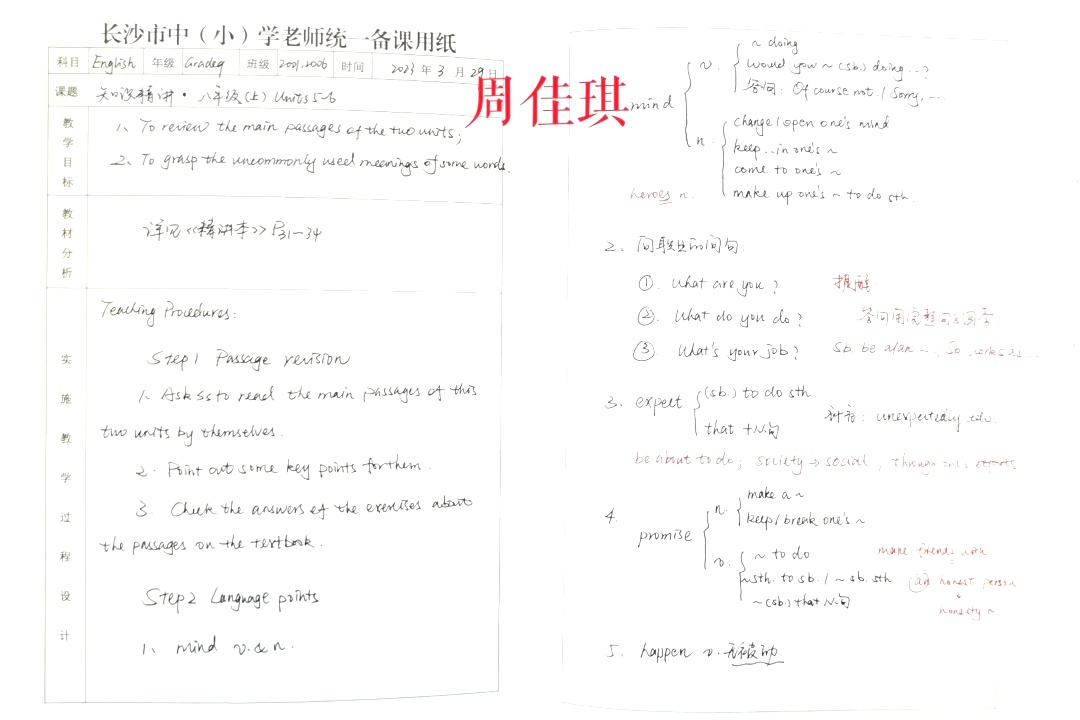 长沙市中（小）学老师统一备课用纸
科目 English 年级 Grade 班级 2001.2006 时间 2023年3月29日
课题 知识精讲·八年级(上) Units 5-6
周佳琪
教学目标
1、To review the main passages of the two units;
2、To grasp the uncommonly used meanings of some words.
教材分析
详见《精讲本》P31-34
实施教学过程设计
Teaching Procedures:
Step 1 Passage revision
1、Ask Ss to read the main passages of this
two units by themselves.
2. Point out some key points for them.
3. Check the answers of the exercises about
the passages on the textbook.
Step 2 Language points
1、mind v. & n.
mind
v.
~ doing
Would you ~ (sb.) doing...?
答问: Of course not. / Sorry, ...
n.
change / open one's mind
keep ... in one's ~
come to one's ~
make up one's ~ to do sth.
heroes n.
2. 问职业的问句:
① What are you? 提醒
② What do you do? 答问用完整句
③ What's your job? Sb. be a/an ...
3. expect
(sb.) to do sth.
that + N.句
补充: unexpectedly adv.
be about to do; society → social, through
4. promise
n.
make a ~
keep / break one's ~
v.
~ to do
~ sth. to sb. / ~ sb. sth.
~ (sb.) that N.句
make friends with
(an) honest person
honesty n
5. happen v. 无被动